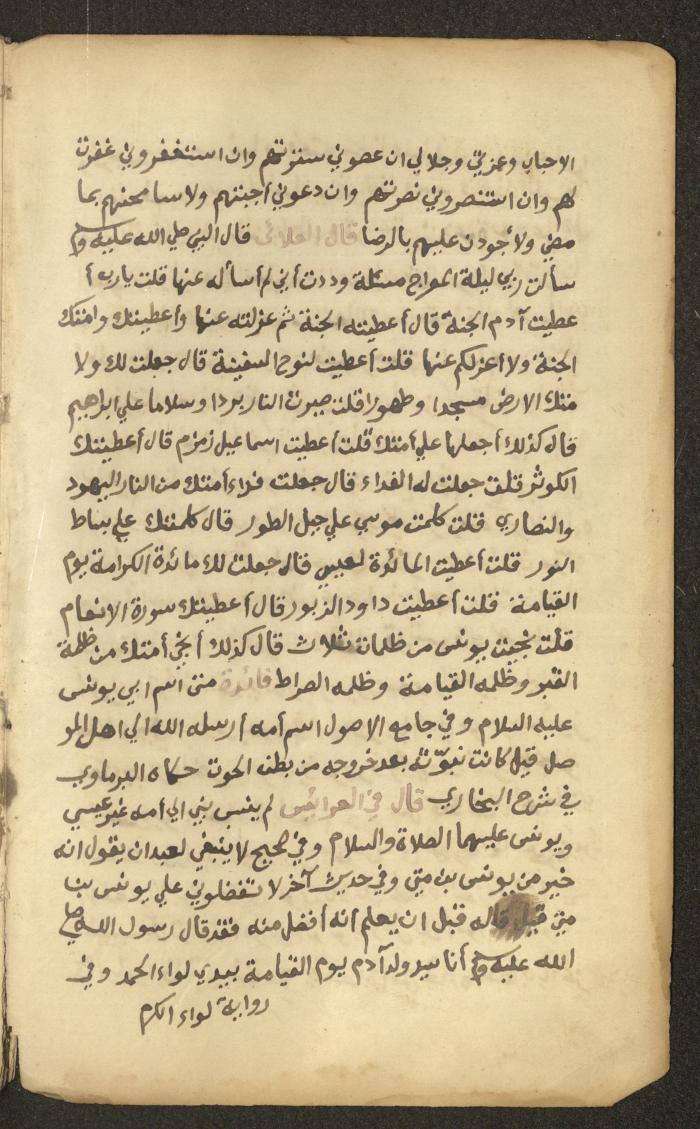 الاحباب وعزتي وجلالي ان عصوني سترتهم وان استغفروني غفرت
لهم وان استنصروني نصرتهم وان دعوني أجبتهم ولاسامحنهم بما
مضي ولأجودن عليهم بالرضا قال العلائي قال النبي صلي الله عليه وسلم
سألت ربي ليلة المعراج مسئلة وددت أني لم أسأله عنها قلت يارب أ
عطيت آدم الجنة قال أعطيته الجنة ثم عزلته عنها وأعطيتك وامتك
الجنة ولا اعزلكم عنها قلت أعطيت لنوح السفينة قال جعلت لك ولا
متك الارض مسجدا وطهورا قلت صيرت النار بردا وسلاما علي ابراهيم
قال كذلك أجعلها علي أمتك قلت أعطيت اسماعيل زمزم قال أعطيتك
الكوثر قلت جعلت له الفداء قال جعلت فداء أمتك من النار اليهود
والنصاري قلت كلمت موسي علي جبل الطور قال كلمتك علي بساط
النور قلت أعطيت المائدة لعيسي قال جعلت لك مائدة الكرامة يوم
القيامة قلت أعطيت داود الزبور قال أعطيتك سورة الانعام
قلت نجيت يونس من ظلمات ثلاث قال كذلك أنجي أمتك من ظلمة
القبر وظلمه القيامة وظلمه الصراط فائدة متي اسم ابي يونس
عليه السلام وفي جامع الاصول اسم أمه أرسله الله الي اهل المو
صل قيل كانت نبوّته بعد خروجه من بطن الحوت حكاه البرماوي
في شرح البخاري قال في العرائس لم ينسب نبي الي أمه غير عيسي
ويونس عليهما الصلاة والسلام وفي صحيح لا ينبغي لعبد ان يقول انه
خير من يونس بن متي وفي حديث آخر لا تفضلوني علي يونس بن
متي قيل قاله قبل ان يعلم أنه أفضل منه فقد قال رسول الله صلي
الله عليه وسلم أنا سيد ولد آدم يوم القيامة بيدي لواء الحمد وفي
رواية لواء الكرم